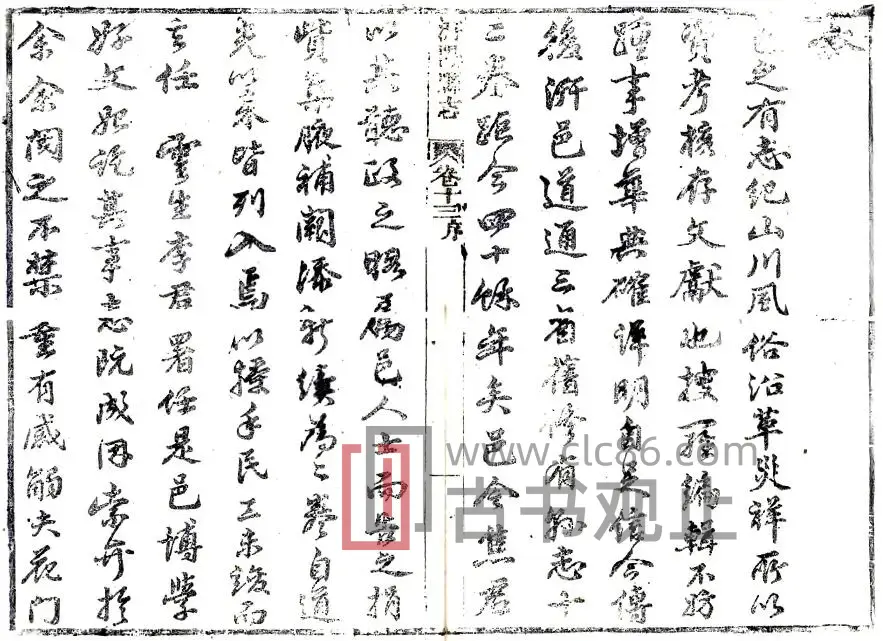 叙
邑之有志紀山川風俗沿革災祥所以
資考核存文獻也搜羅編輯不妨
踵事增華典確詳明自足信今傳
後汧邑道通三省舊修有縣志十
二卷距今四十餘年矣邑令焦君
汧陽縣志 卷十三 序
以其聽政之暇 邑人士而與之捐
貲集腋補闕添新續為二卷自道
光以來皆列入焉以 手民工未竣而
去任 雲生李君署任是邑博學
好文 其事志既成因索弁於
余余閱之不禁重有感觸夫花門
www.clc86.com
古书观止